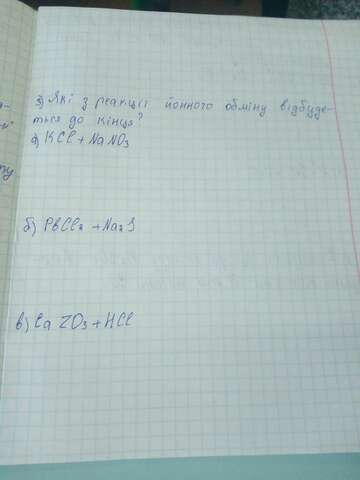 3) Які з реакції йонного обміну відбуде-
ться до кінця?
а) KCl + NaNO₃
б) PbCl₂ + Na₂S
в) Ca ZO₃ + HCl